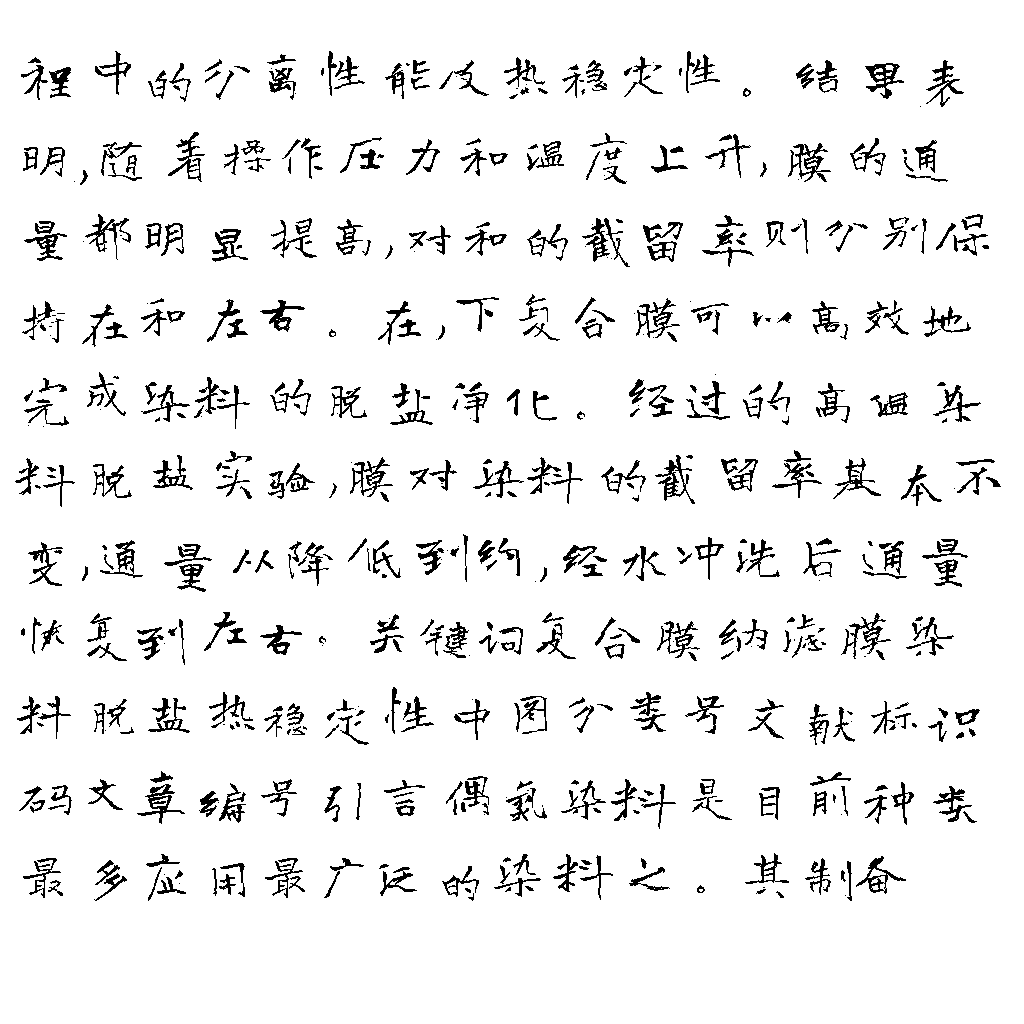 程中的分离性能及热稳定性。结果表
明,随着操作压力和温度上升,膜的通
量都明显提高,对和的截留率则分别保
持在和左右。在,下复合膜可以高效地
完成染料的脱盐净化。经过的高温染
料脱盐实验,膜对染料的截留率基本不
变,通量从降低到约,经水冲洗后通量
恢复到左右。关键词复合膜纳滤膜染
料脱盐热稳定性中图分类号文献标识
码文章编号引言偶氮染料是目前种类
最多应用最广泛的染料之。其制备